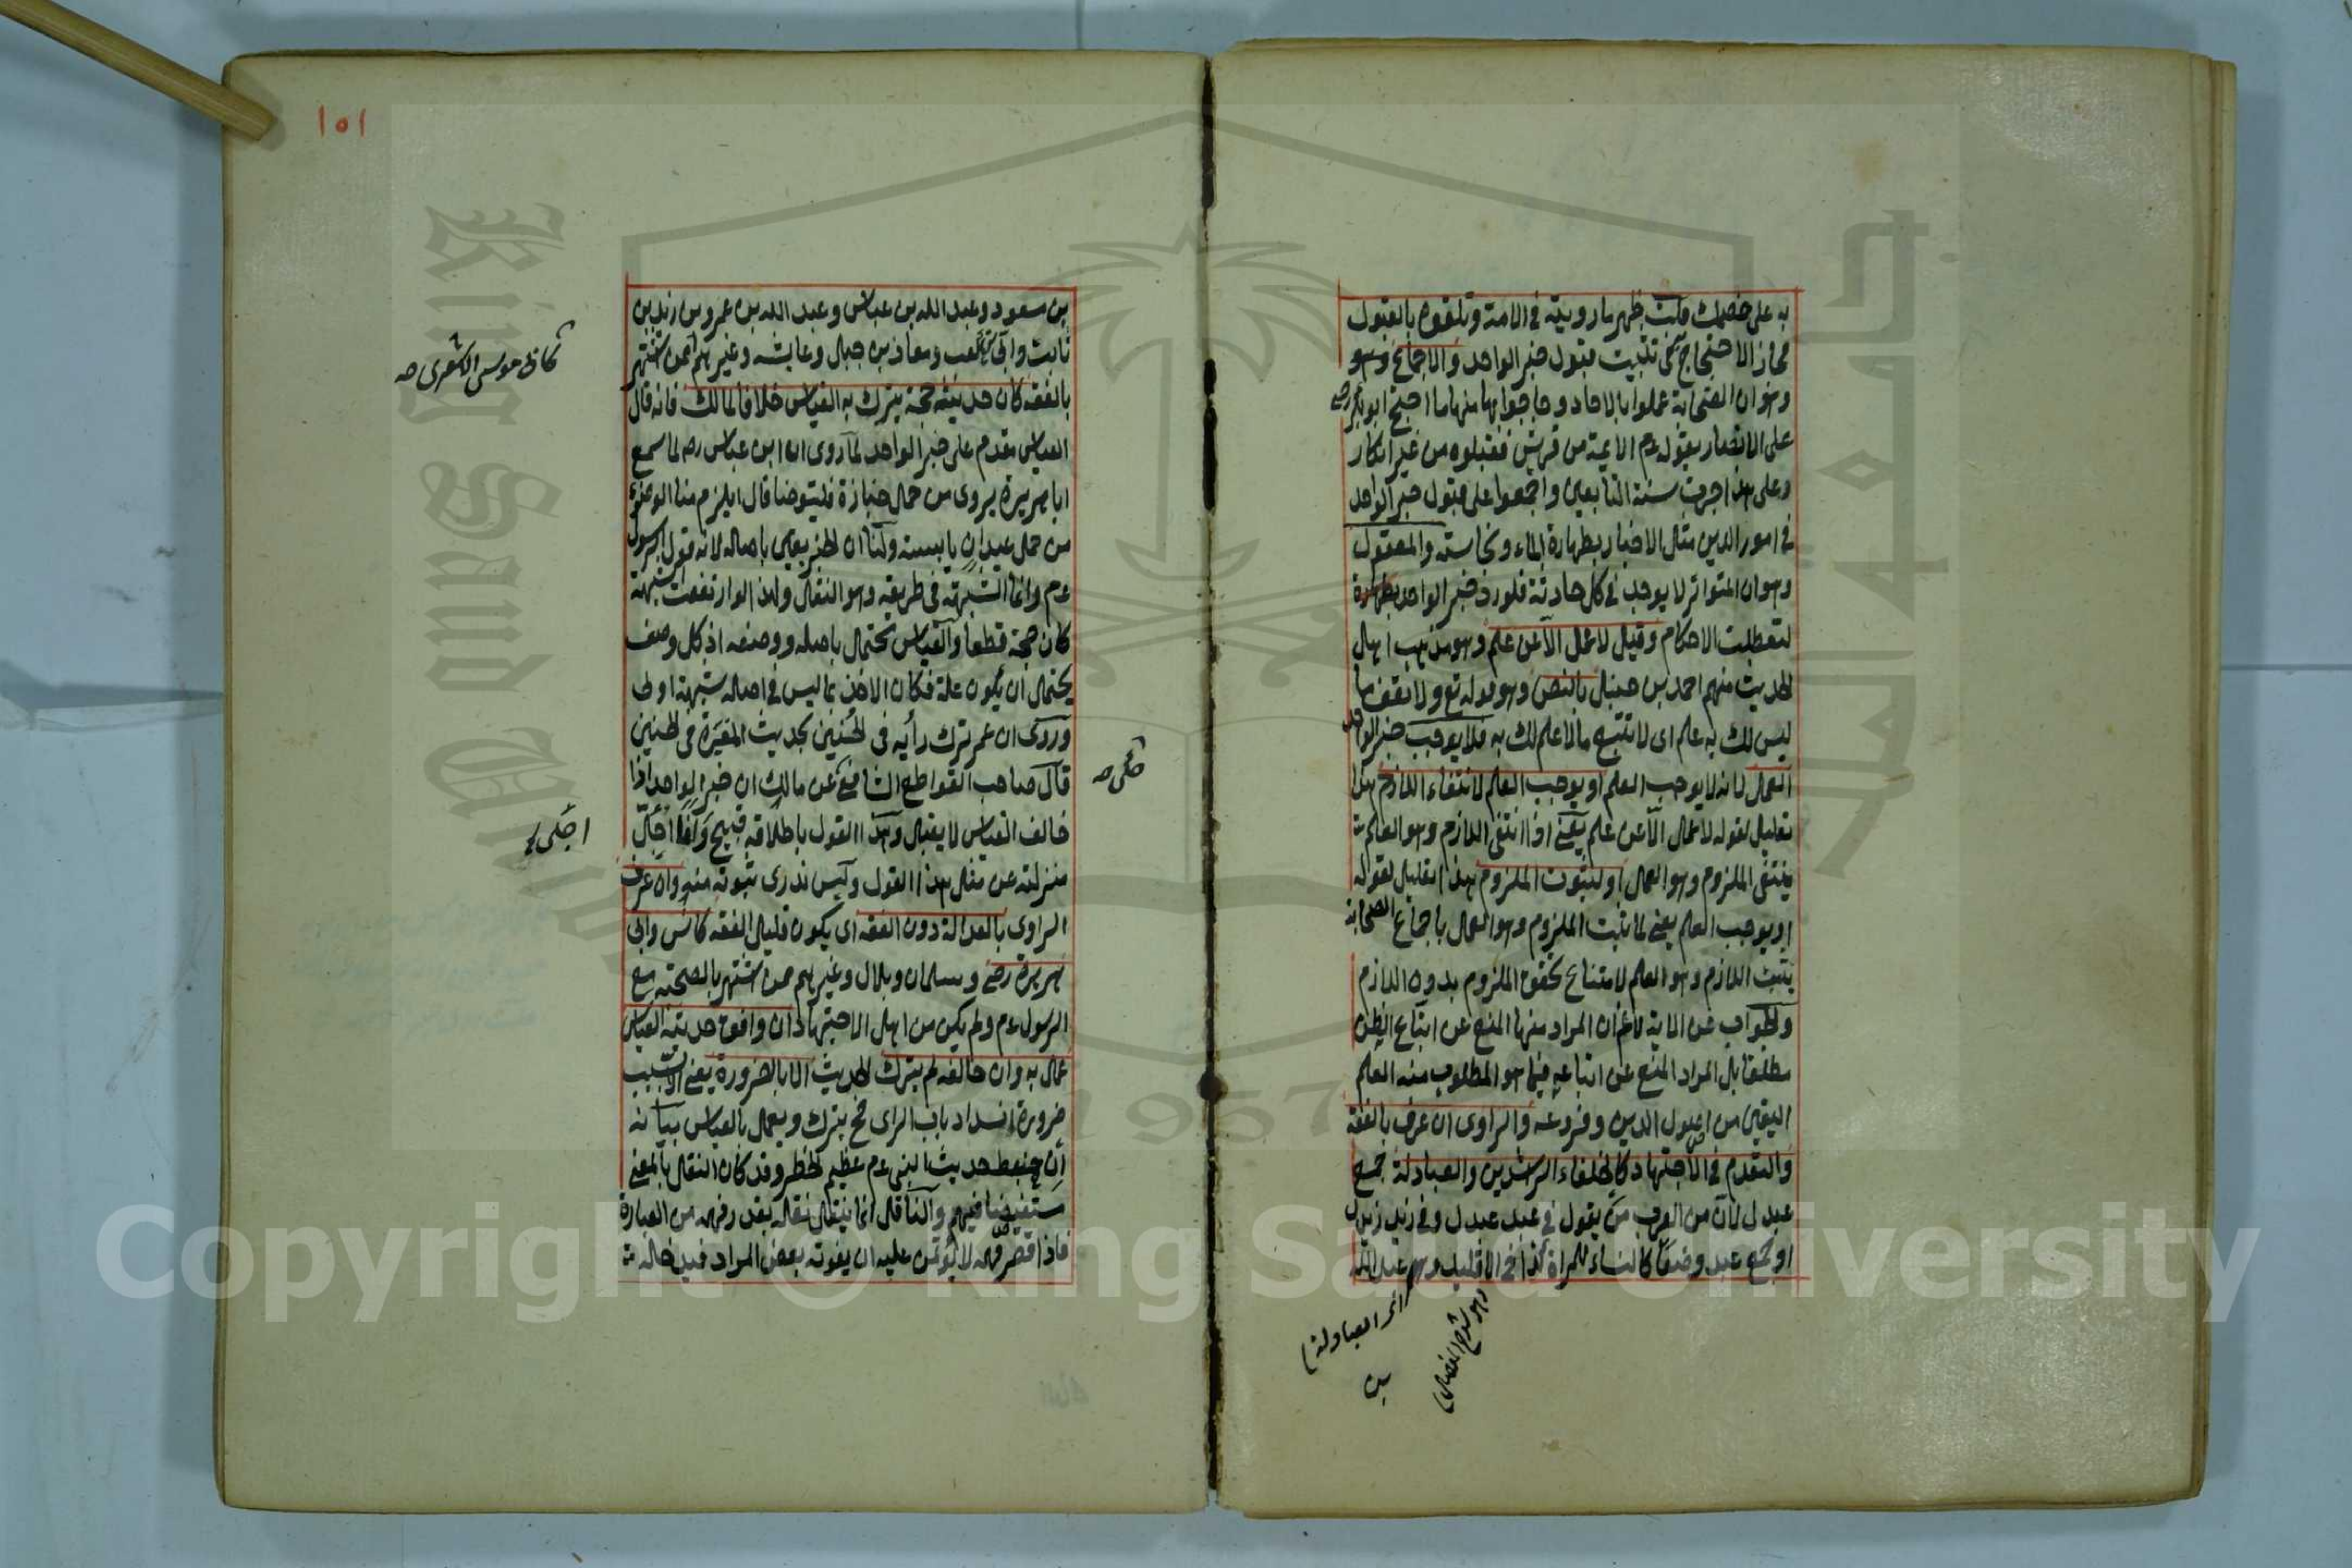 به على خصمك قلت ظهر ما رويته في الامة وتلقوه بالقبول
فجاز الاحتجاج في تثبيت قبول خبر الواحد والاجماع وهو
وهو ان الصحابة عملوا بالاحاد وحاجوا بها منها ما احتج ابو بكر رض
على الانصار بقوله عم الايمة من قريش فقبلوه من غير انكار
وعلى هذا جرت سنة التابعين واجمعوا على قبول خبر الواحد
في امور الدين مثل الاخبار بطهارة الماء ونجاسته والمعقول
وهو ان المتواتر لا يوجد في كل حادثة فلو رد خبر الواحد
لتعطلت الاحكام وقيل لا عمل الا عن علم وهو مذهب اهل
الحديث منهم احمد بن حنبل بالنص وهو قوله تع ولا تقف ما
ليس لك به علم اى لا تتبع ما لا علم لك به فلا يوجب خبر الواحد
العمل لانه لا يوجب العلم او يوجب العلم لانتفاء اللازم هذا
تعليل لقوله لا عمل الا عن علم يعنى اذا انتفى اللازم وهو العلم
ينتفى الملزوم وهو العمل او لثبوت الملزوم هذا تعليل لقوله
او يوجب العلم يعنى لما ثبت الملزوم وهو العمل باجماع الصحابة
يثبت اللازم وهو العلم لامتناع تحقق الملزوم بدون اللازم
والجواب عن الاية لانم ان المراد منها المنع عن اتباع الظن
مطلقا بل المراد المنع عن اتباعه فيما هو المطلوب منه العلم
اليقين من اصول الدين وفروعه والراوى ان عرف بالفقه
والتقدم في الاجتهاد كالخلفاء الراشدين والعبادلة جمع
عبدل لان من العرب من يقول في عبد عبدل وفي زيد زيدل
او جمع عبد وضعا كالنساء للمراة كذا في الاقليد وهم عبد الله
وهو شرح المفصل
العبادلة
بن
بن مسعود وعبد الله بن عباس وعبد الله بن عمر وبن زيد بن
ثابت وابى بن كعب ومعاذ بن جبل وعايشه وغيرهم ممن اشتهر
كابى موسى الاشعرى صح
بالفقه كان حديثه حجة يترك به القياس خلافا لمالك فانه قال
القياس مقدم على خبر الواحد لما روى ان ابن عباس رض لما سمع
ابا هريرة يروى من حمل جنازة فليتوضا قال ايلزم منا الوضوء
من حمل عيدان يابسة ولنا ان الخبر يقين باصله لانه قول الرسول
عم وانما الشبهة في طريقه وهو النقل ولهذا لو ارتفعت الشبهة
كان حجة قطعا والقياس محتمل باصله ووصفه اذ كل وصف
يحتمل ان يكون علة فكان الاخذ بما ليس في اصله شبهة اولى
وروى ان عمر ترك رأيه في الجنين بحديث الغرة في الجنين
قال صاحب القواطع الشافعى عن مالك ان خبر الواحد اذا
حكى صح
خالف القياس لا يقبل وهذا القول باطلاقه قبيح وانا اجل
اجل
منزلته عن مثل هذا القول وليس ندرى ثبوته منه وان عرف
الراوى بالعدالة دون الفقه اى يكون قليل الفقه كانس وابى
هريرة رض وسلمان وبلال وغيرهم ممن اشتهر بالصحبة مع
الرسول عم ولم يكن من اهل الاجتهاد ان وافق حديثه القياس
عمل به وان خالفه لم يترك الحديث الا بالضرورة يعنى الا بسبب
ضرورة انسداد باب الراى فح يترك ويعمل بالقياس بيانه
ان ضبط حديث النبى عم عظيم الخطر وقد كان النقل بالمعنى
مستفيضا فيهم والناقل انما ينقل نقله بقدر فهمه من العبارة
فاذا قصر فهمه لا يؤمن عليه ان يفوته بعض المراد فيدخله
١٥١
Copyright © King Saud University
King Saud University
1957